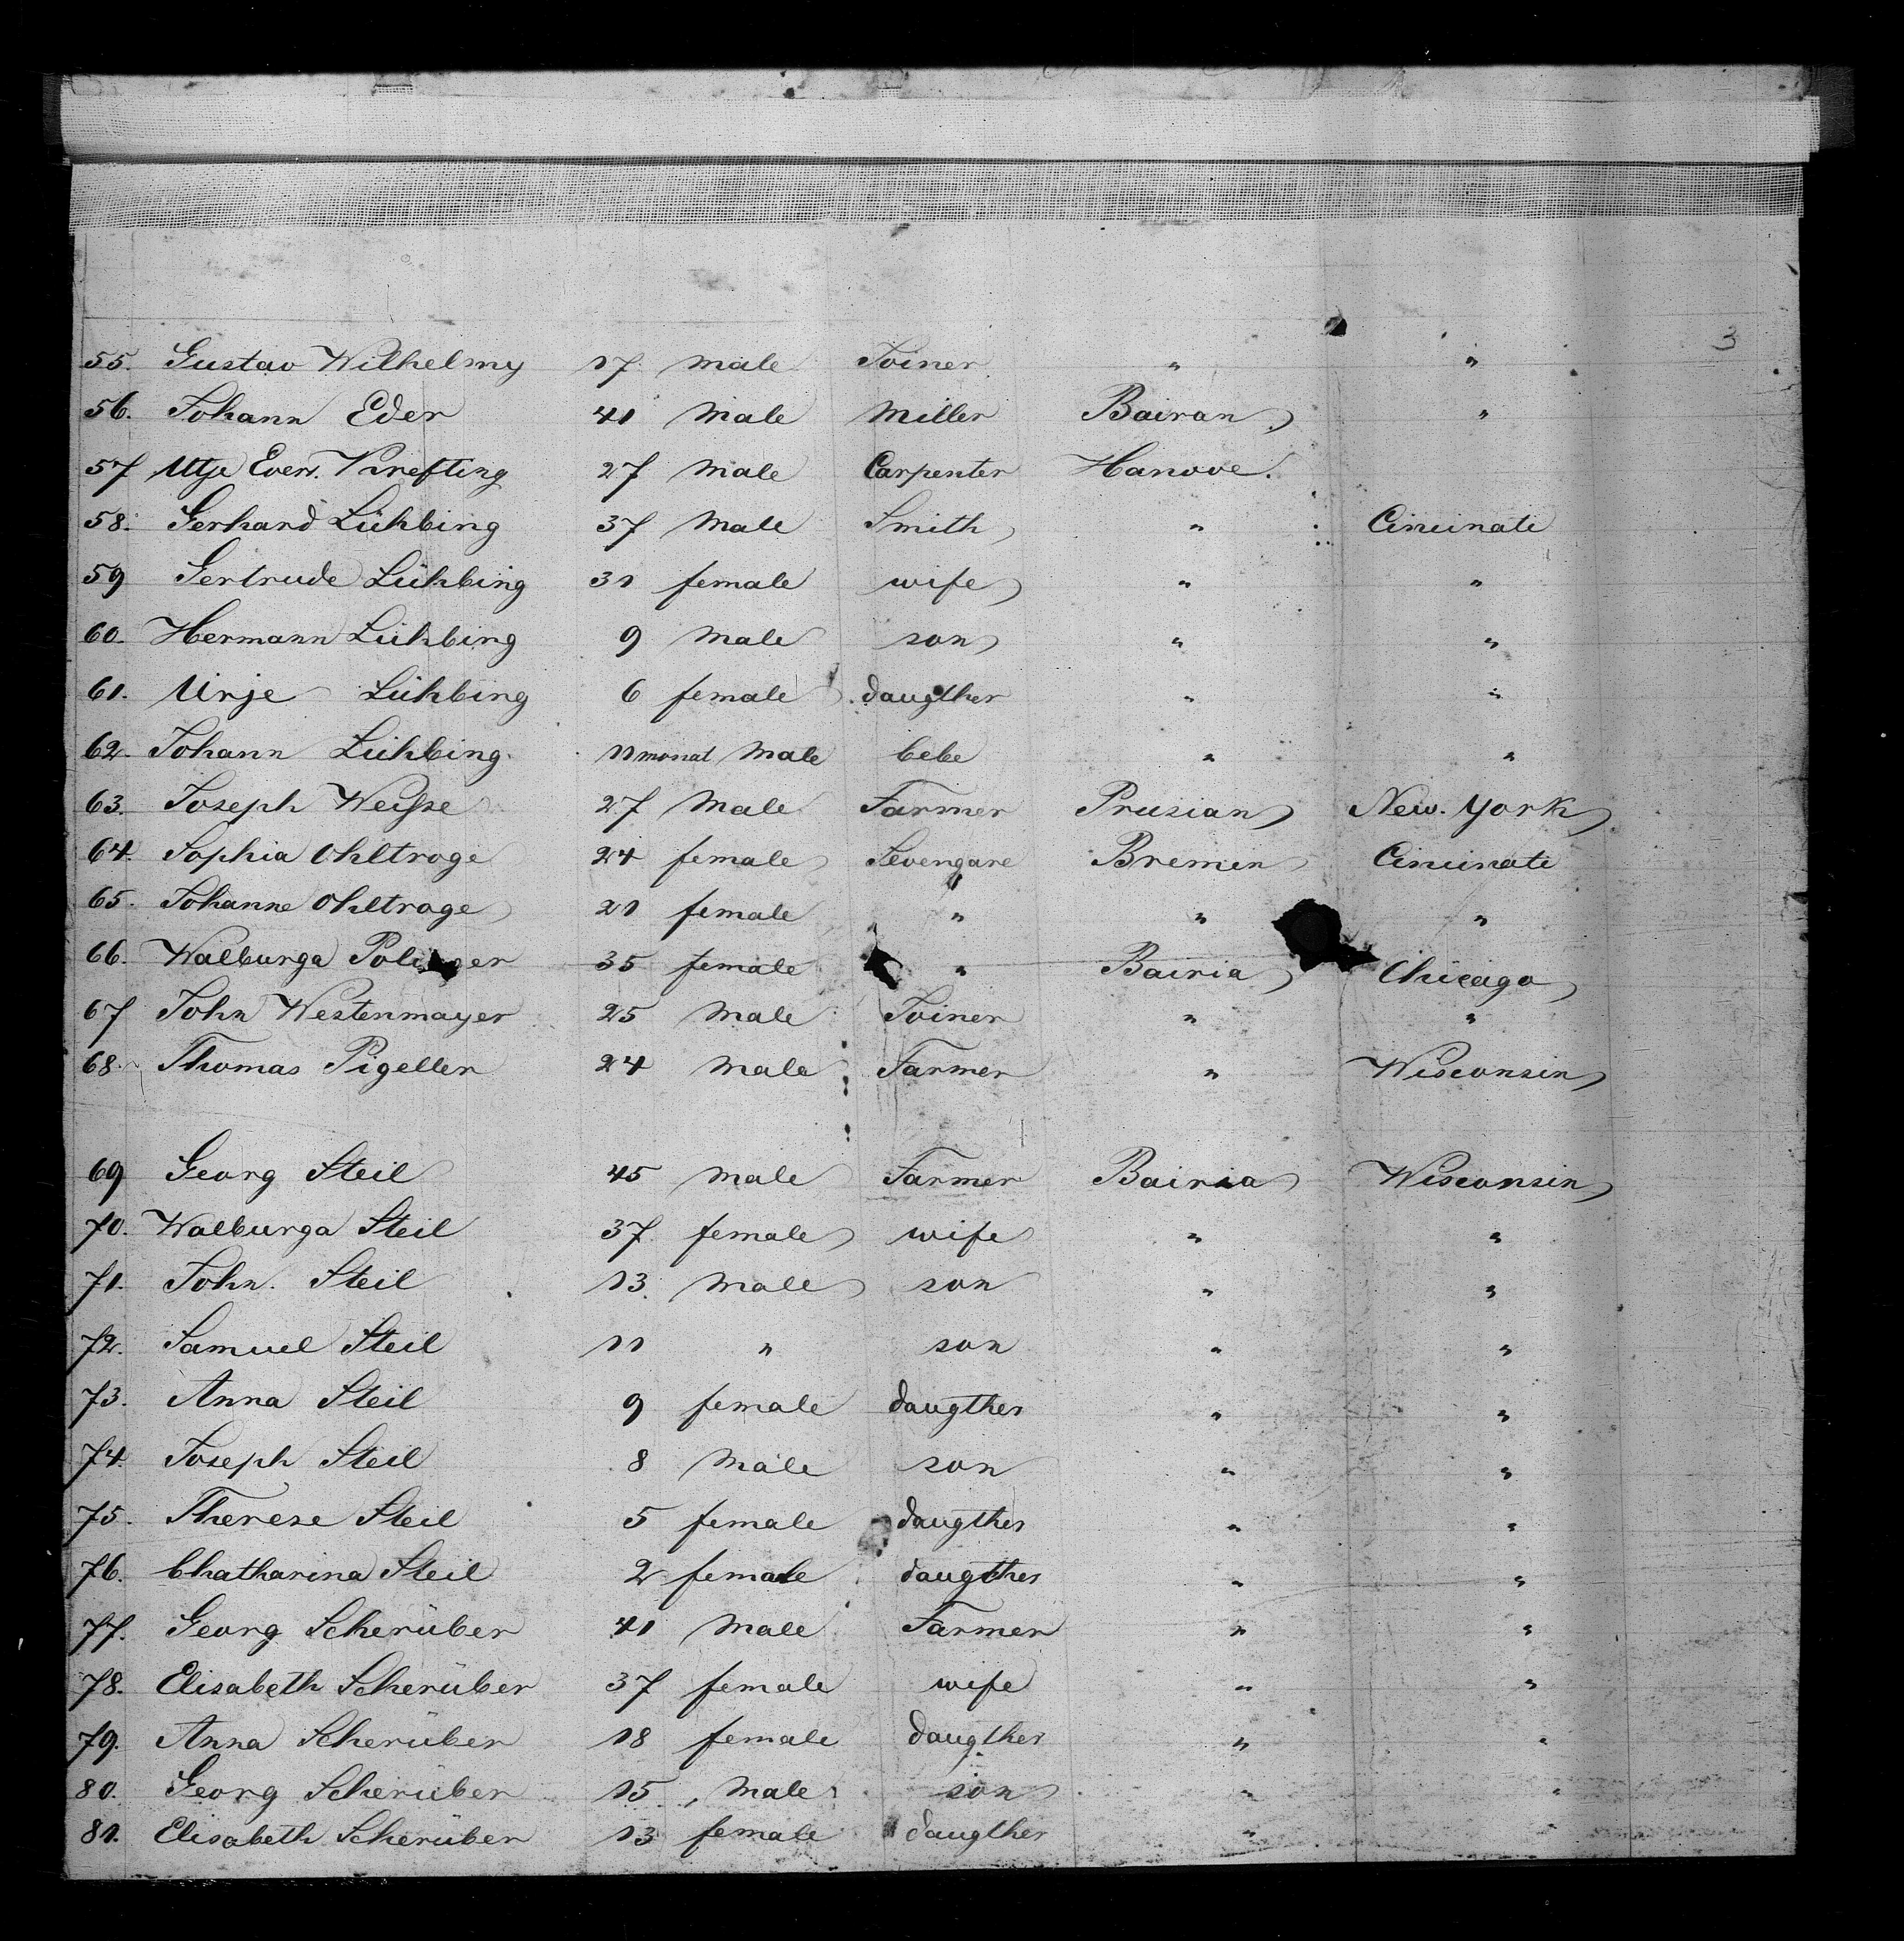 3
55. Gustav Wilhelmy 17. Male Joiner " "
56. Johann Eder 41 Male Miller Bairan "
57 Utje Evers. Krefting 27 Male Carpenter Hanove.
58. Gerhard Lühbing 37 Male Smith " Cincinate
59 Gertrude Lühbing 31 female wife " "
60. Hermann Lühbing 9 Male son " "
61. Urje Lühbing 6 female daugther " "
62. Johann Lühbing. 11 monat Male bebe " "
63. Joseph Weisse 27 Male Farmer Prusian New. York
64. Sophia Ohltroge 24 female Sevengare Bremen Cincinate
65. Johanne Ohltroge 21 female " " "
66. Walburga 35 female " Bairia Chicago
67 John Westenmayer 25 Male Joiner " "
68. Thomas Pigeller 24 Male Farmer " Wisconsin
69 Georg Steil 45 Male Farmer Bairia Wisconsin
70. Walburga Steil 37. female wife " "
71. John. Steil 13. Male son " "
72. Samuel Steil 11 " son " "
73. Anna Steil 9 female daugther " "
74. Joseph Steil 8 Male son " "
75. Therese Steil 5 female daugther " "
76. Chatharina Steil 2 female daugther " "
77. Georg Scherüber 41 Male Farmer " "
78. Elisabeth Scherüber 37 female wife " "
79. Anna Scherüber 18 female daugther " "
80. Georg Scherüber 15 Male son " "
81. Elisabeth Scherüber 13 female daugther " "